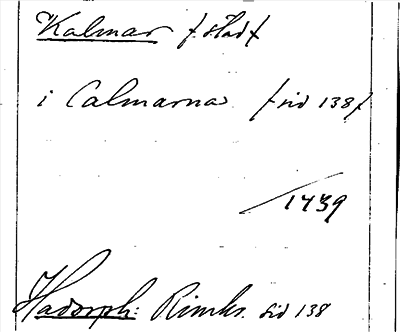 Kalmar /: stad :/
i Calmarna /: sid 138 :/
1439
Hadorph: Rimkr. sid 138